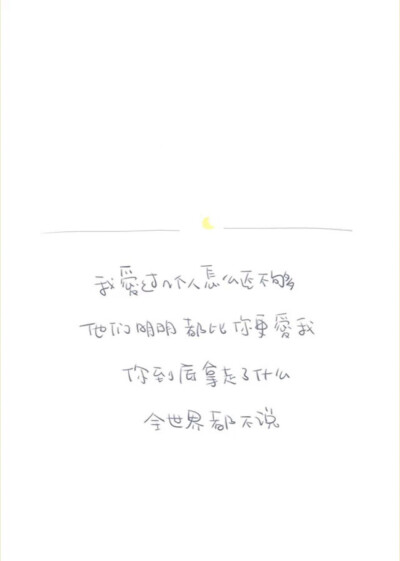 我愛过几个人怎么还不够
他们明明都比你更愛我
你到底拿走了什么
全世界都不说